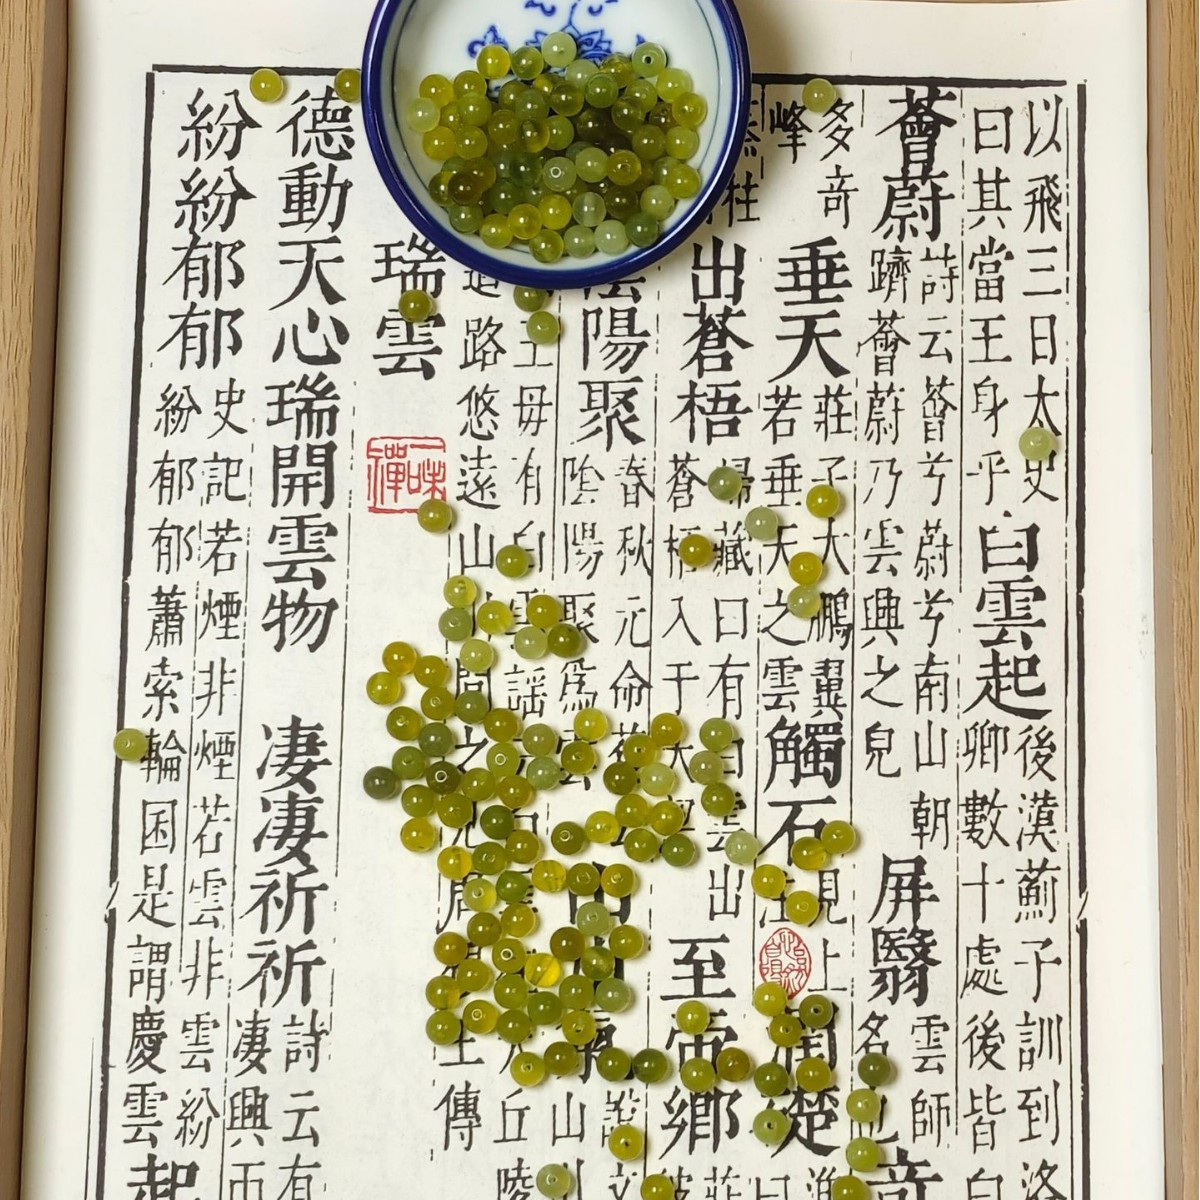 以飛三日太史
曰其當王身乎
白雲起
後漢薊子訓到洛
卿數十處後皆白
薈蔚
詩云薈兮蔚兮南山朝
躋薈蔚乃雲興之皃
屏翳
雲師
名也
奇
多奇
峰
垂天
莊子大鵬翼
若垂天之雲
觸石
見上
注
潤楚
柱
出蒼梧
歸藏曰有白雲出
蒼梧入于大
至帝鄉
陰陽聚
春秋元命苞
陰陽聚爲雲
山川氣
說文
山川
王母有白雲謠
丘陵
道路悠遠山川間之
王傳
瑞雲
一味禪
德動天心瑞開雲物
凄凄祈祈
詩云有
凄興而
紛紛郁郁
史記若煙非煙若雲非雲紛
紛郁郁蕭索輪囷是謂慶雲
起